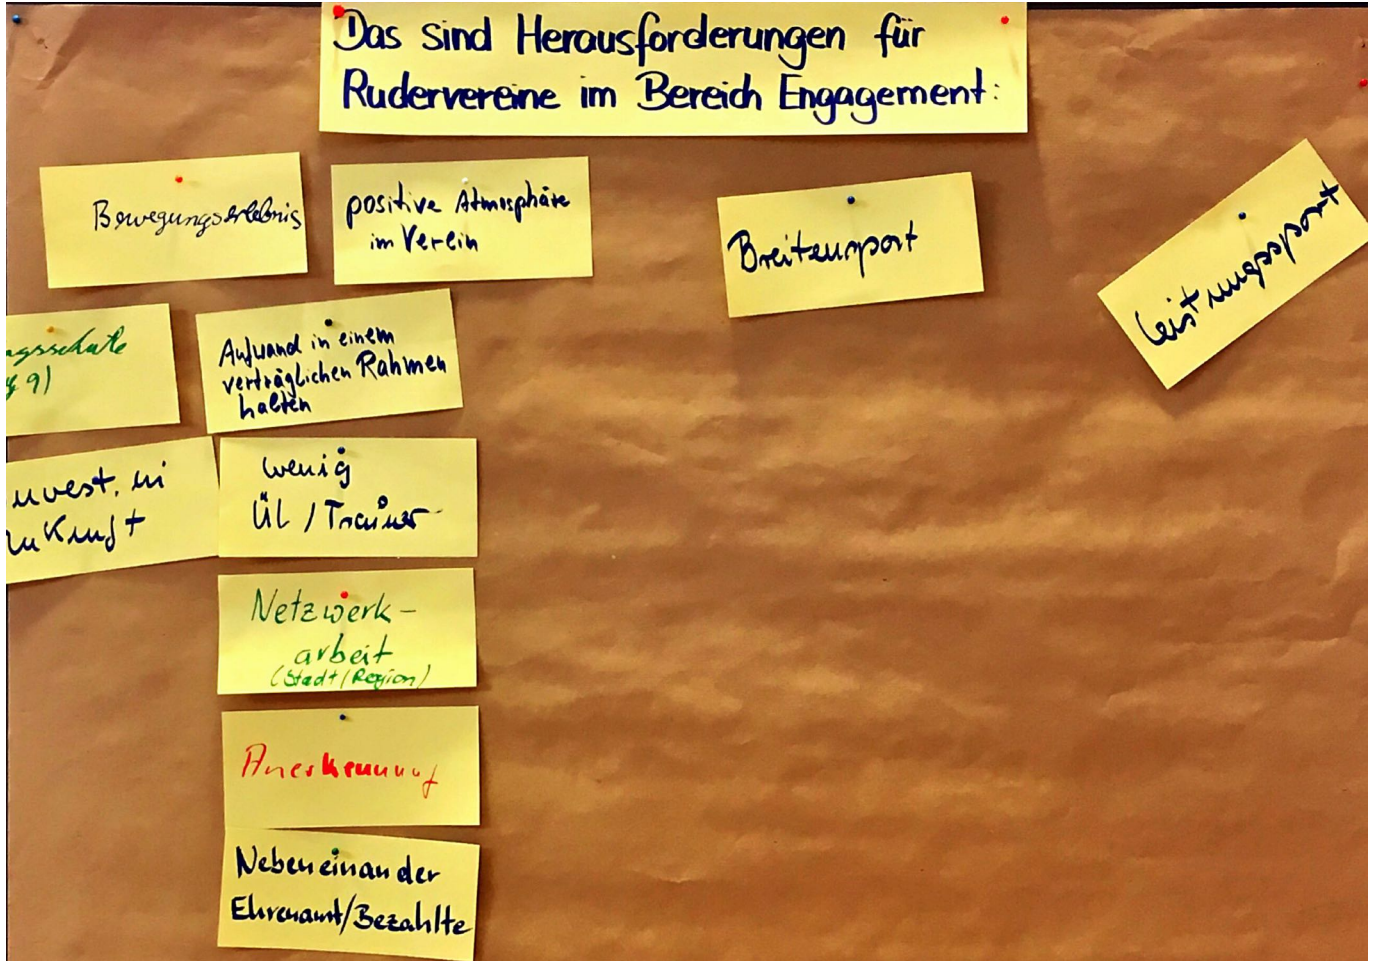 Das sind Herausforderungen für
Rudervereine im Bereich Engagement:
Bewegungserlebnis
positive Atmosphäre
im Verein
Breitensport
Leistungssport
Aufwand in einem
verträglichen Rahmen
halten
9)
invest. in
Zukunft
wenig
ÜL / Trainer
Netzwerk-
arbeit
(Stadt/Region)
Anerkennung
Nebeneinander
Ehrenamt/Bezahlte